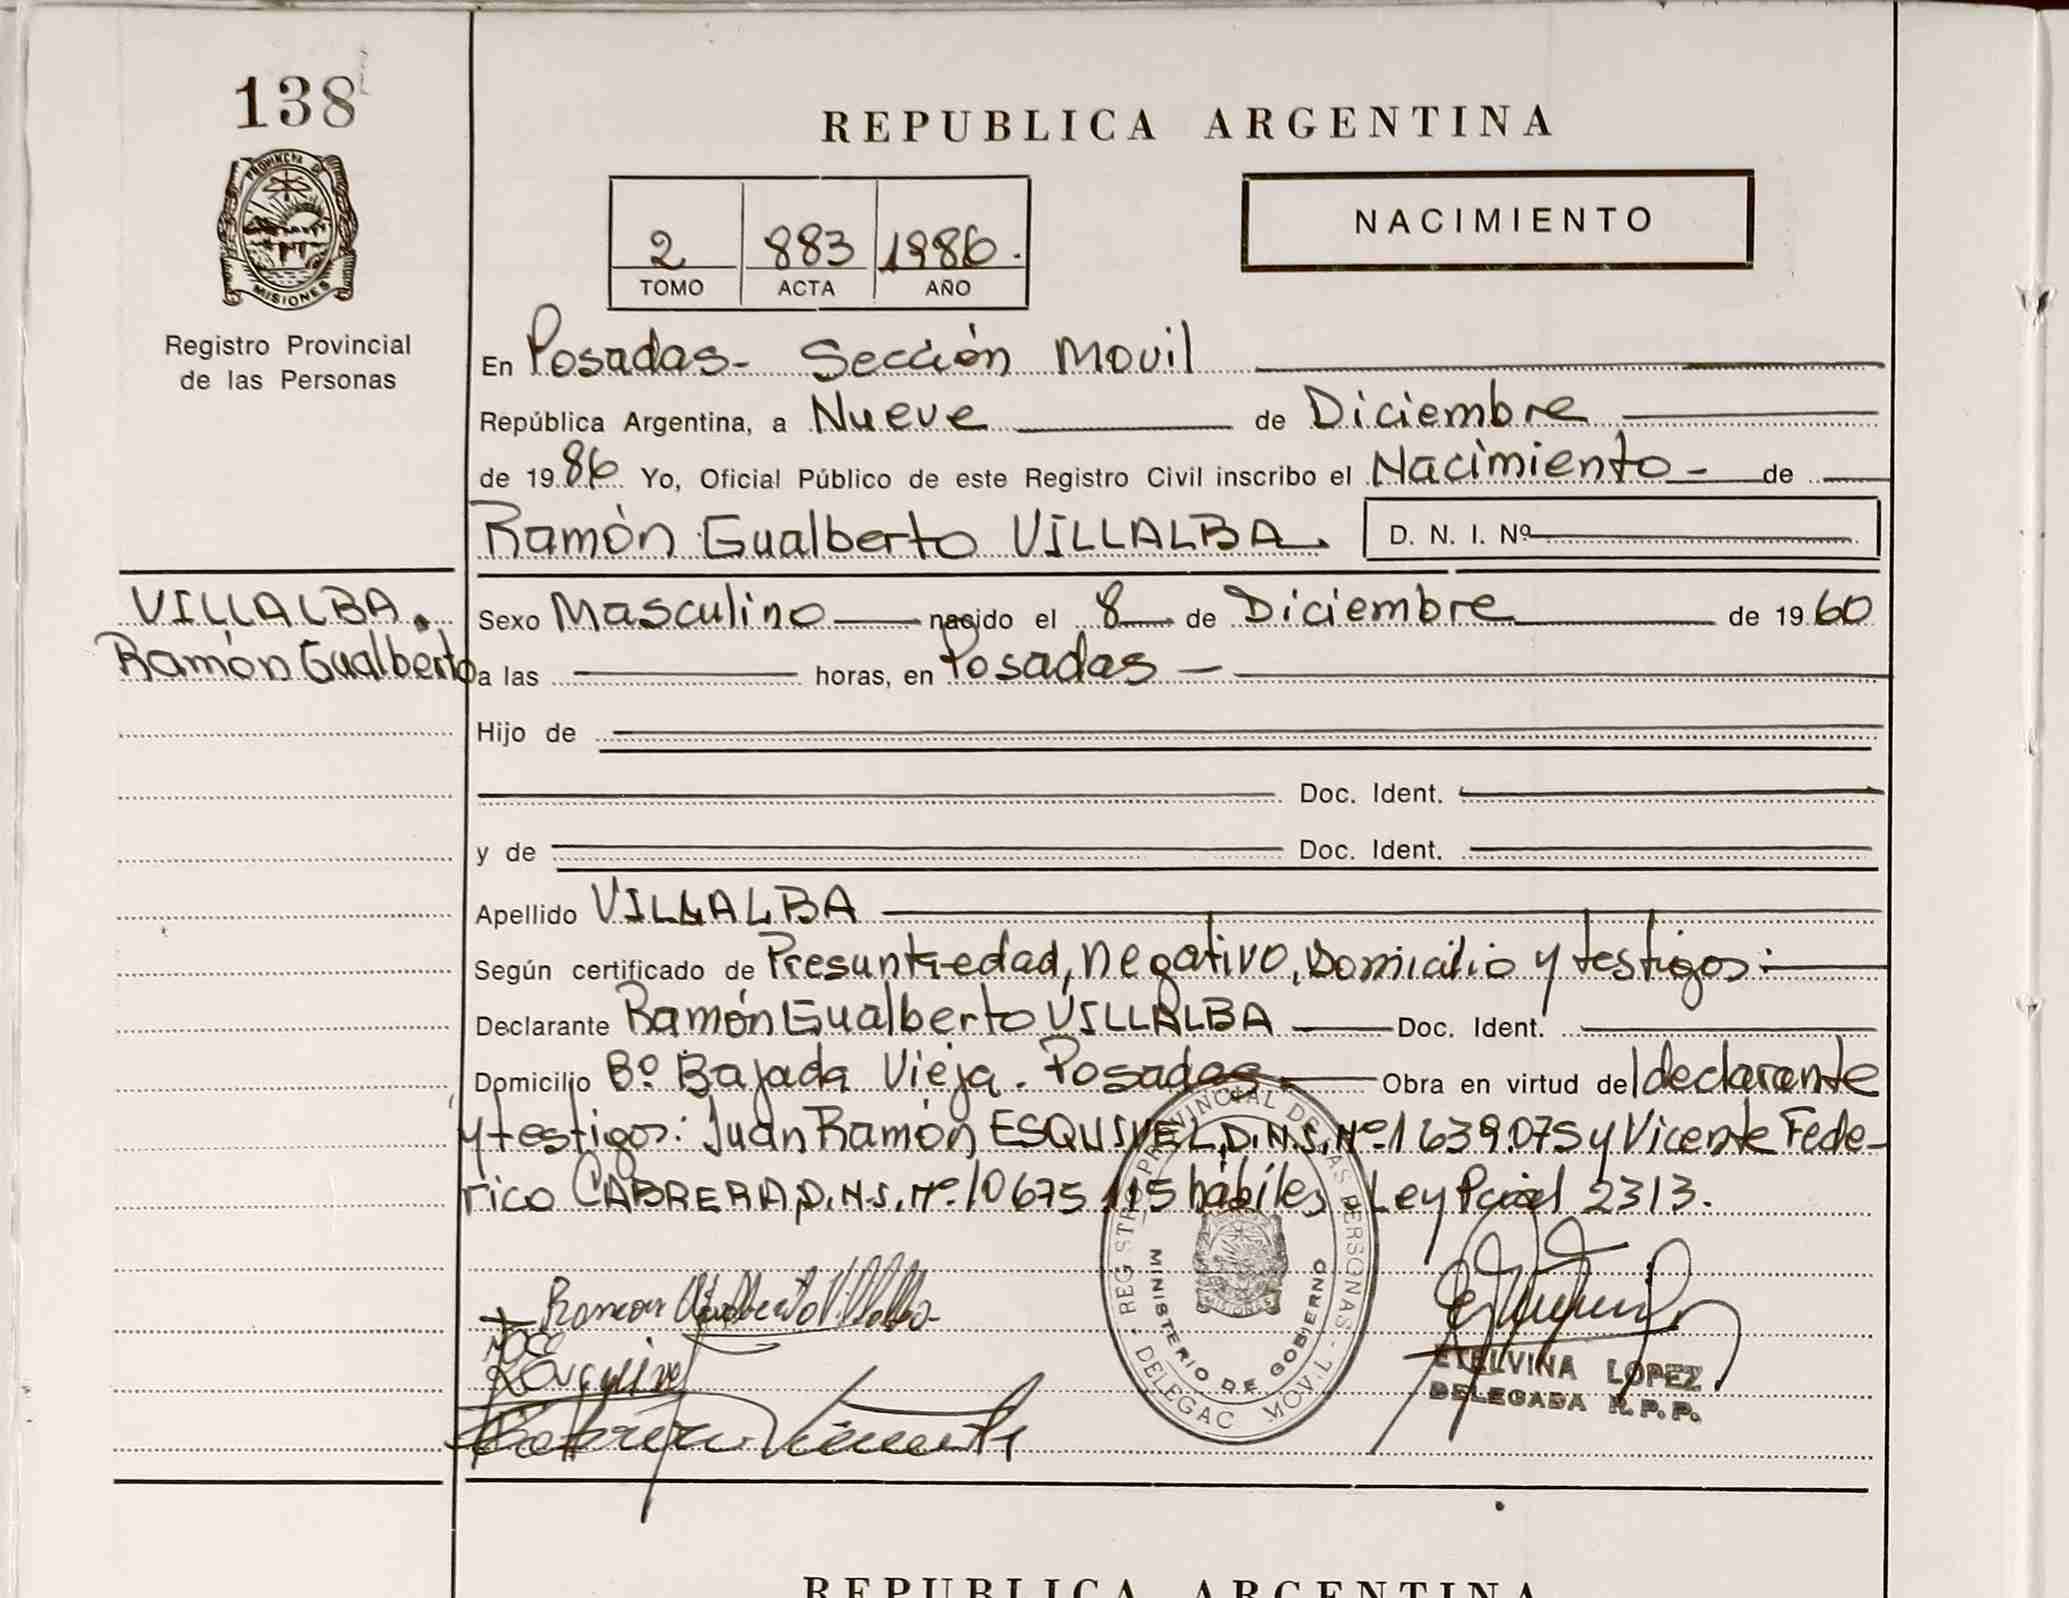 138
PROVINCIA DE
MISIONES
Registro Provincial
de las Personas
REPUBLICA ARGENTINA
2 883 1986.
TOMO ACTA AÑO
NACIMIENTO
En Posadas- Sección Movil
República Argentina, a Nueve de Diciembre
de 1986 Yo, Oficial Público de este Registro Civil inscribo el Nacimiento - de
Ramón Gualberto VILLALBA. D. N. I. Nº
VILLALBA.
Ramón Gualberto
Sexo Masculino nacido el 8 de Diciembre de 1960
a las horas, en Posadas -
Hijo de
Doc. Ident.
y de Doc. Ident.
Apellido VILLALBA
Según certificado de Presunta edad, negativo, Domicilio y testigos:
Declarante Ramón Gualberto VILLALBA Doc. Ident.
Domicilio Bº Bajada Vieja. Posadas Obra en virtud del declarante
y testigos: Juan Ramón ESQUIVEL, D.N.I. Nº 1639.075 y Vicente Fede-
rico CABRERA, D.N.I. Nº 10675115 hábiles Ley Pcial 2313.
Ramon Gualberto Villalba
Cabrera Vicente
REGISTRO PROVINCIAL DE LAS PERSONAS - DELEGAC MOVIL -
MINISTERIO DE GOBIERNO
MISIONES
ETELVINA LOPEZ
DELEGADA R.P.P.
REPUBLICA ARGENTINA